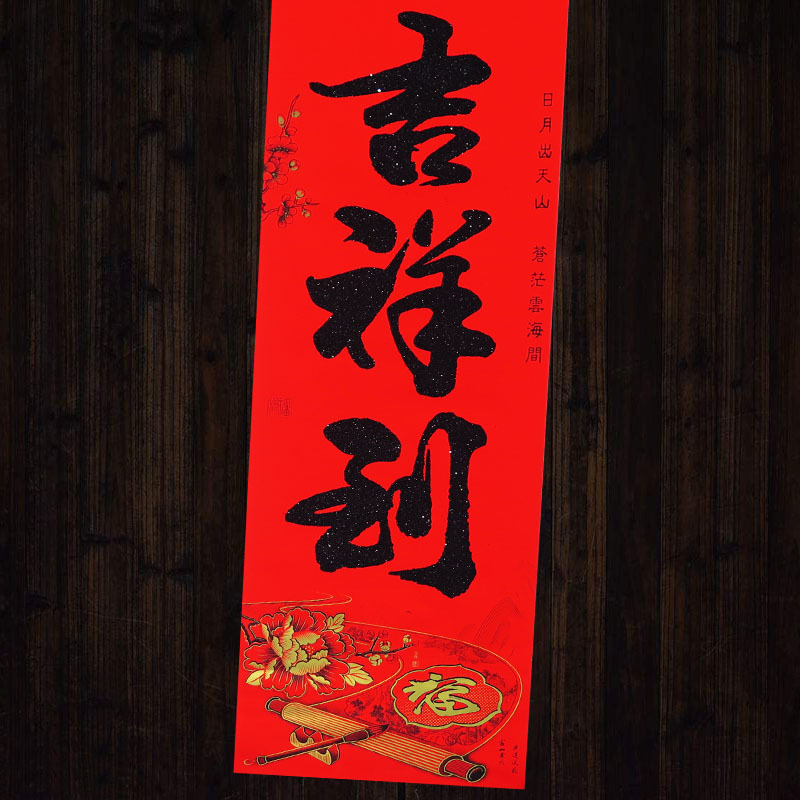 吉祥到
日月出天山
蒼茫雲海間
福